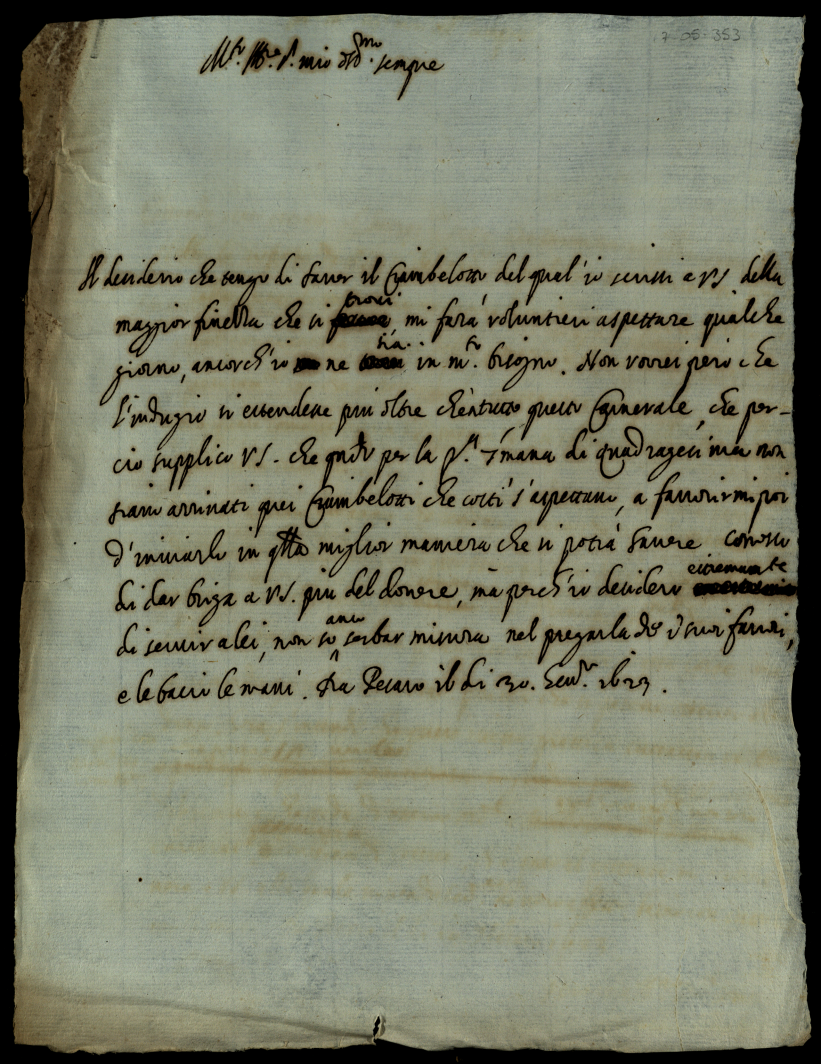 7-05-353
M.to Ill.re S.r mio oss.mo sempre
Il desiderio che tengo di haver il Ciambelotto del qual'io scrissi a VS della
maggior finezza che si trovi, mi farà voluntieri aspettare qualche
giorno, ancorch'io ne sia in m.to bisogno. Non vorrei però che
l'indugio si estendesse più oltre che tutto questo Carnevale, che per-
ciò supplico VS. che qndo per la p.a 7mana di quadragesima non
siano arrivati quei Ciambelotti che costì s'aspettano, a favorirmi poi
d'inviarlo in qlla miglior maniera che si potrà havere conosco
di dar briga a VS. più del dovere, ma perch'io desidero estremamte
di servir a lei, non so anco serbar misura nel pregarla de i suoi favori,
e le bacio le mani. Da Pesaro il dì 30. 1623.